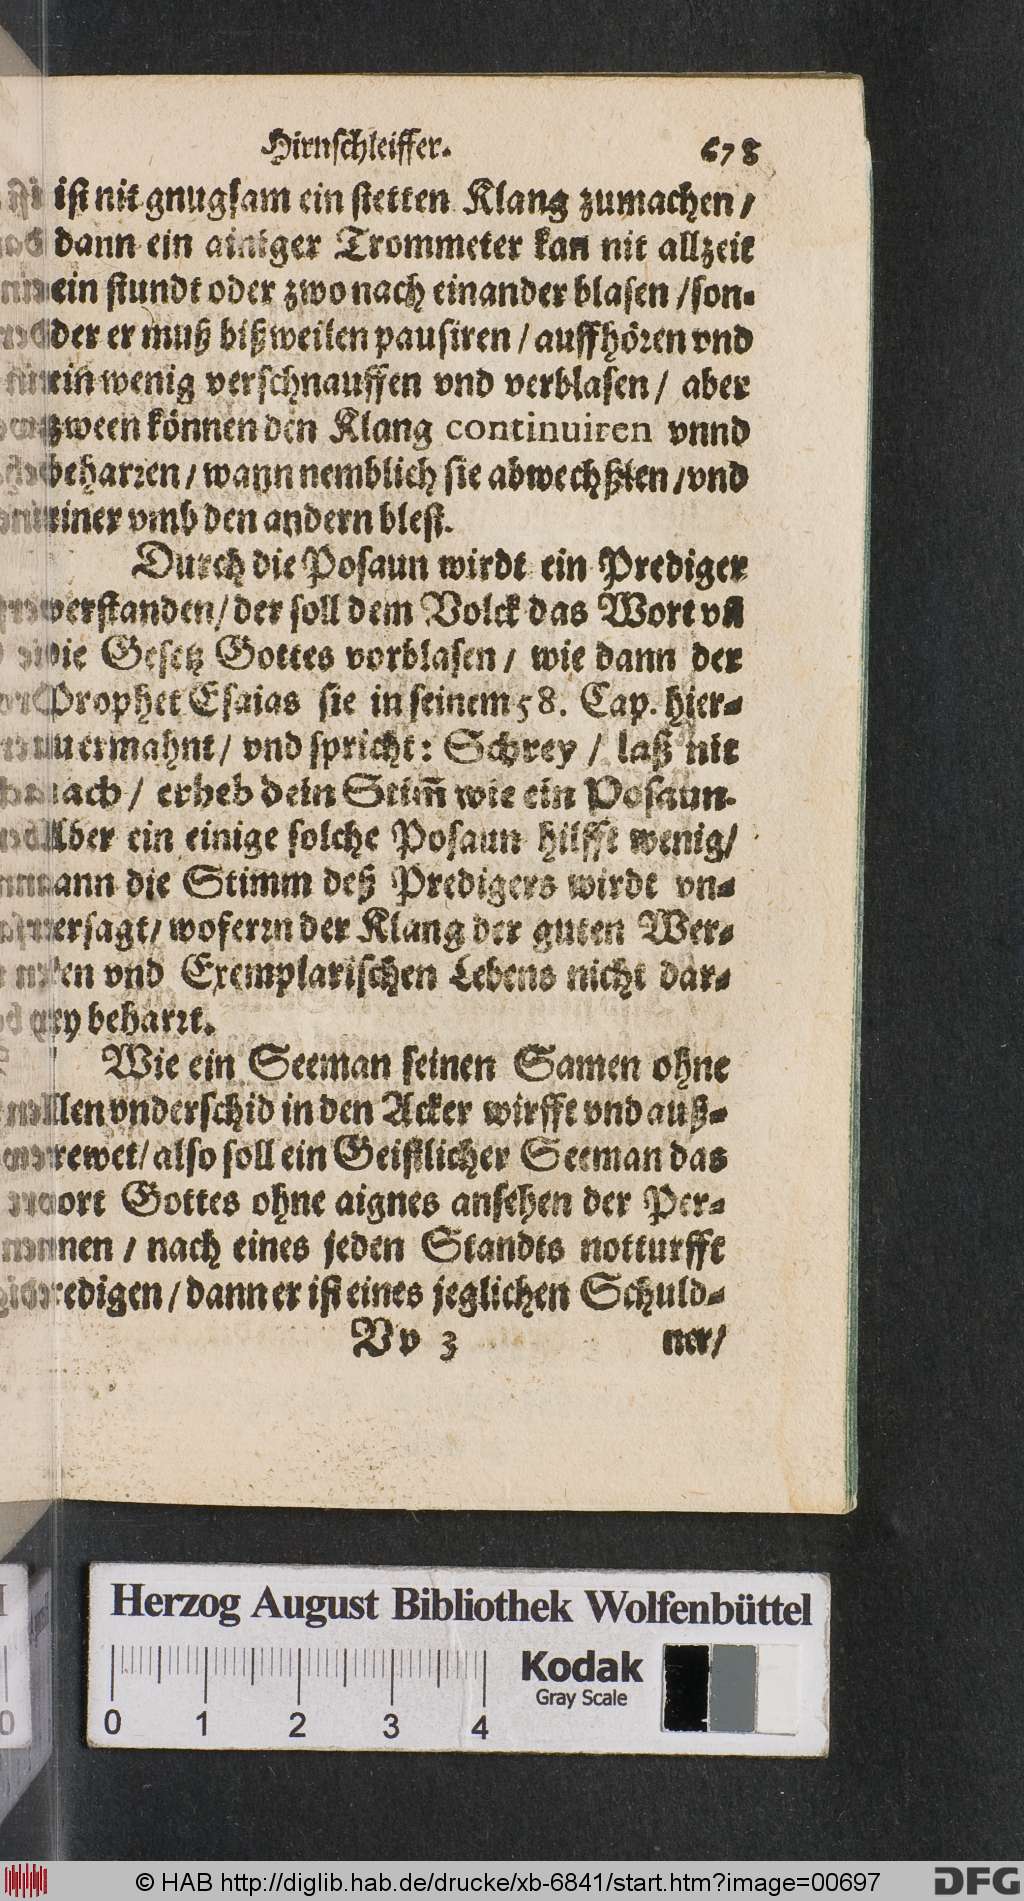 Hirnschleiffer. 678
ist nit gnugsam ein stetten Klang zumachen /
dann ein ainiger Trommeter kan nit allzeit
ein stundt oder zwo nach einander blasen / son-
der er muß bißweilen pausiren / auffhören vnd
ein wenig verschnauffen vnd verblasen / aber
zween können den Klang continuiren vnnd
beharren / wann nemblich sie abwechßlen / vnd
einer vmb den andern blest.
Durch die Posaun wirdt ein Prediger
verstanden / der soll dem Volck das Wort vñ
die Gesetz Gottes vorblasen / wie dann der
Prophet Esaias sie in seinem 58. Cap. hier-
zu ermahnt / vnd spricht: Schrey / laß nit
nach / erheb dein Stim̃ wie ein Posaun.
Aber ein einige solche Posaun hilfft wenig /
dann die Stimm deß Predigers wirdt vn-
ersagt / wofern der Klang der guten Wer-
cken vnd Exemplarischen Lebens nicht dar-
bey beharrt.
Wie ein Seeman seinen Samen ohne
allen vnderschid in den Acker wirfft vnd auß-
strewet / also soll ein Geistlicher Seeman das
Wort Gottes ohne aignes ansehen der Per-
sonnen / nach eines jeden Standts notturfft
predigen / dann er ist eines jeglichen Schuld-
Vv 3 ner /
Herzog August Bibliothek Wolfenbüttel
Kodak
Gray Scale
0 1 2 3 4
© HAB http://diglib.hab.de/drucke/xb-6841/start.htm?image=00697
DFG